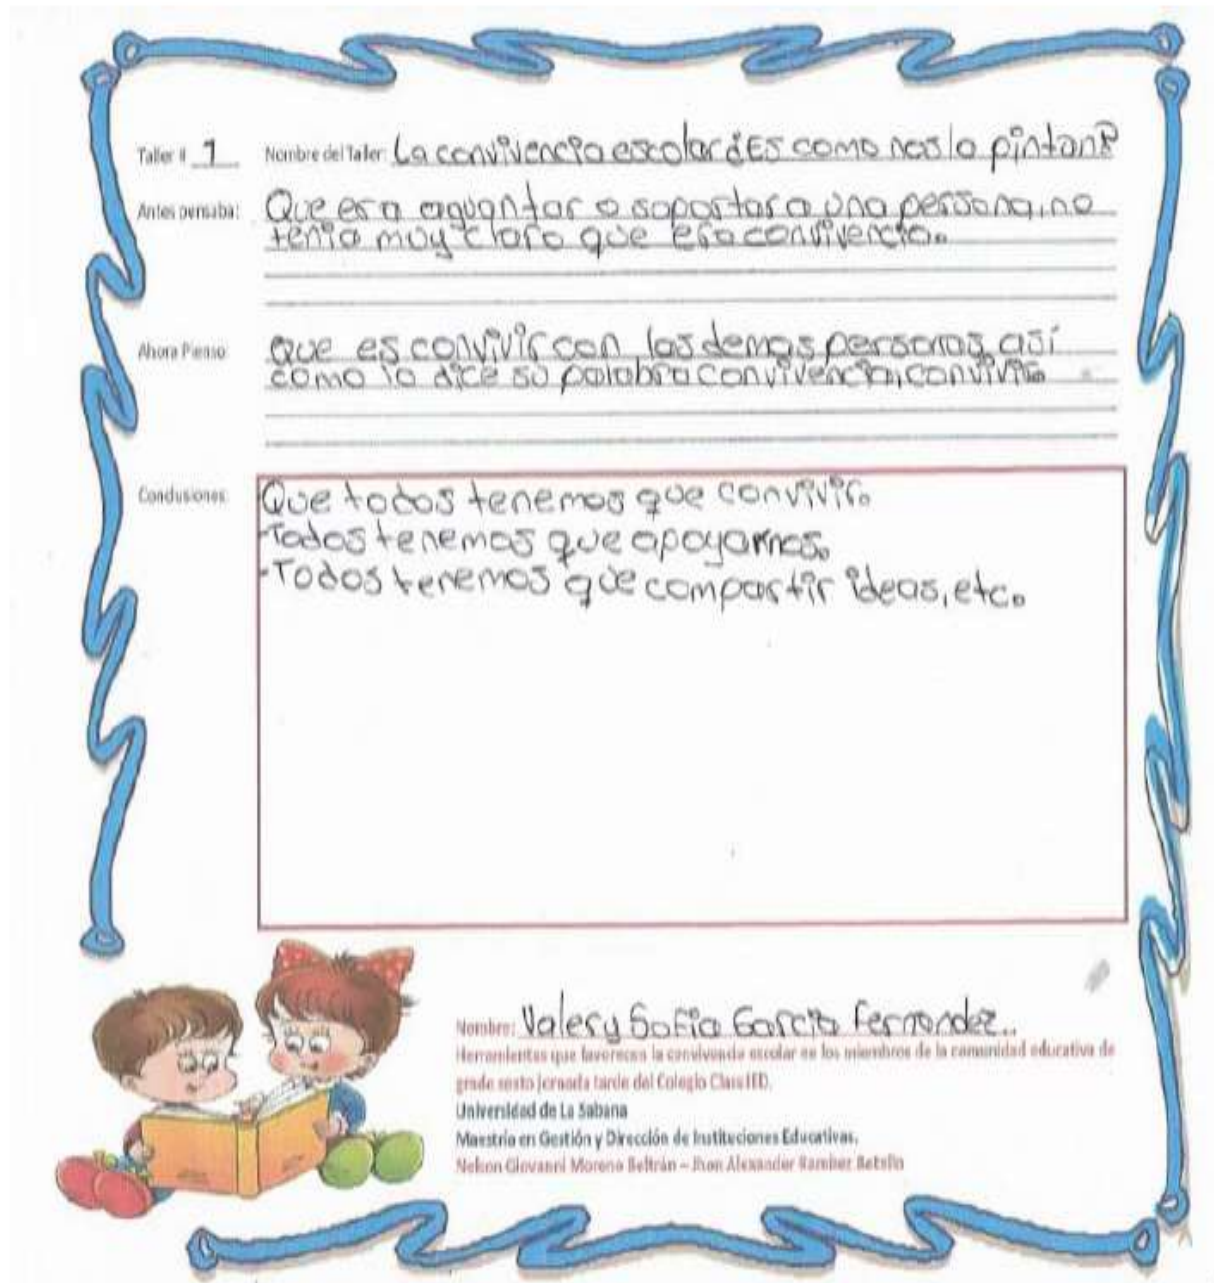 Taller # 1 Nombre del Taller: La convivencia escolar ¿Es como nos lo pintan?
Antes pensaba: Que era aguantar o soportar a una persona, no
tenia muy claro que era convivencia.
Ahora Pienso: que es convivir con las demas personas, así
como lo dice su palabra convivencia, convivir.
Conclusiones: Que todos tenemos que convivir.
-Todos tenemos que apoyarnos.
-Todos tenemos que compartir ideas, etc.
Nombre: Valery Sofia Garcia Fernandez..
Herramientas que favorecen la convivencia escolar en los miembros de la comunidad educativa de
grado sexto jornada tarde del Colegio Class IED.
Universidad de La Sabana
Maestría en Gestión y Dirección de Instituciones Educativas.
Nelson Giovanni Moreno Beltrán – Jhon Alexander